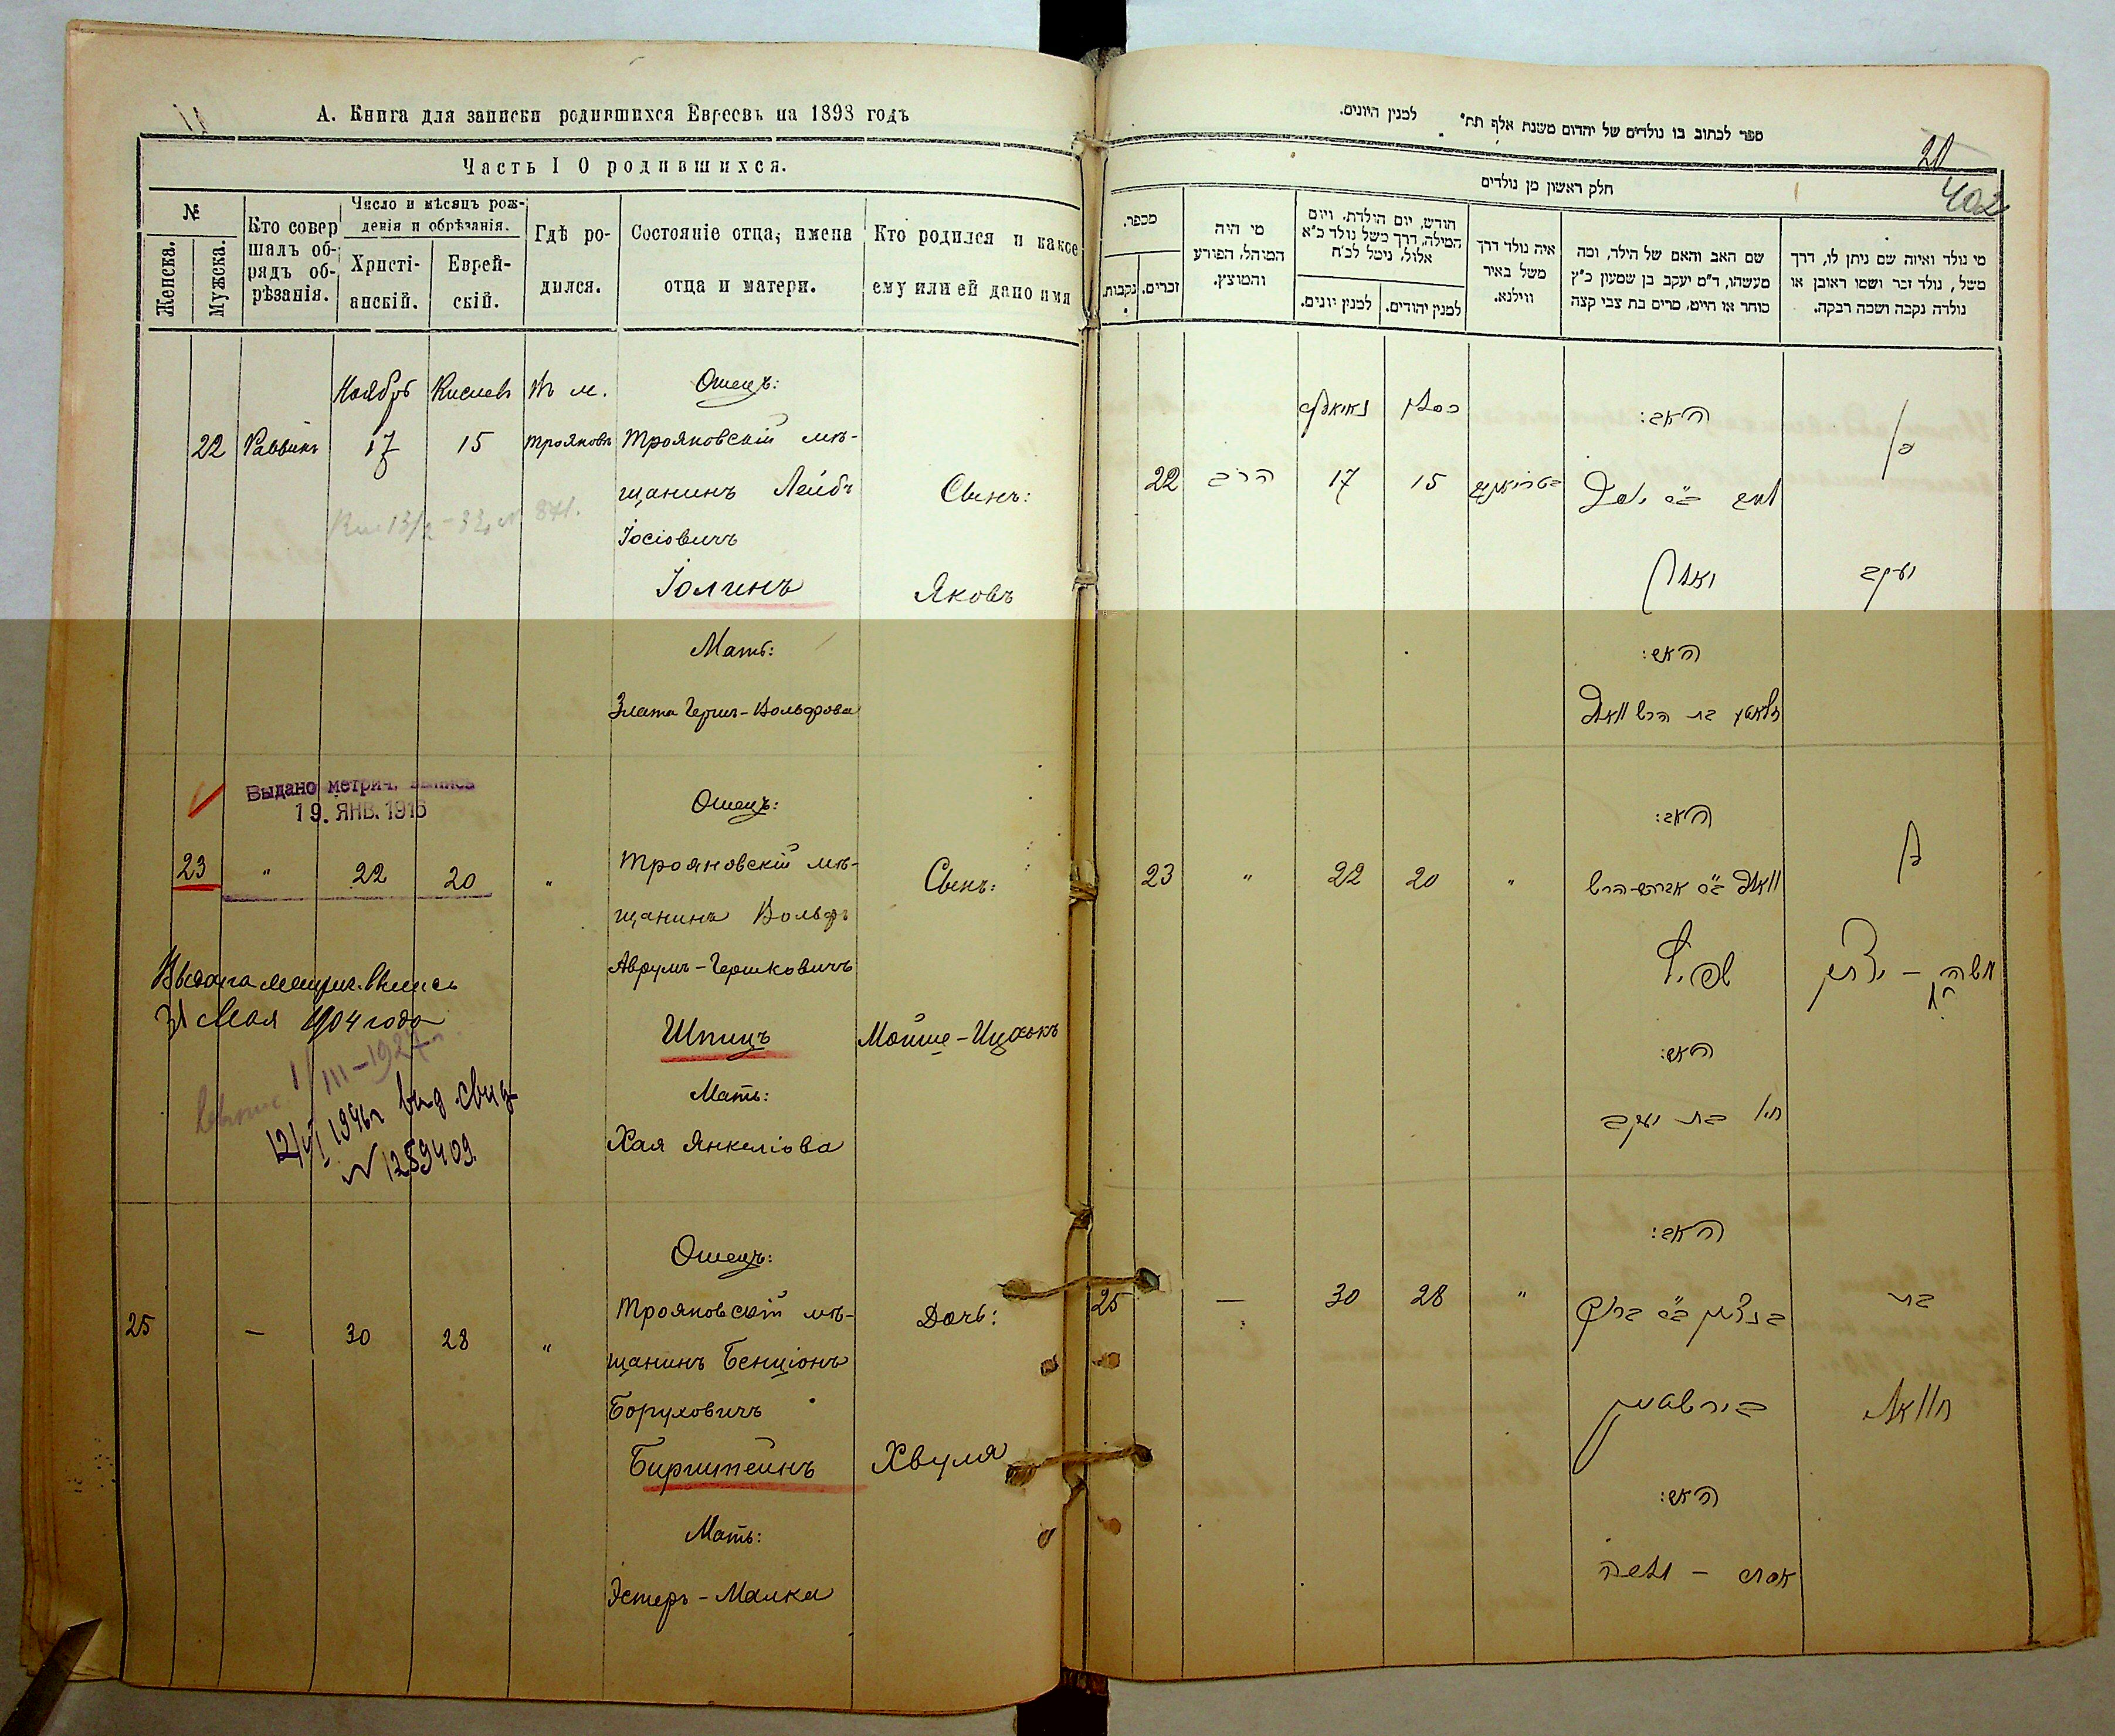 А. Книга для записки родившихся Евреевъ на 1898 годъ
Часть I О родившихся.
№
Женска.
Мужска.
Кто совер
шалъ об-
рядъ об-
рѣзанія.
Число и мѣсяцъ рож-
денія и обрѣзанія.
Христі-
анскій.
Еврей-
скій.
Гдѣ ро-
дился.
Состояніе отца, имена
отца и матери.
Кто родился и какое
ему или ей дано имя
Ноябрь Кислевъ Въ м. Отецъ:
22 Раввинъ 17 15 Трояновъ Трояновскій мѣ-
щанинъ Лейбъ Сынъ:
Іосіовичъ
Іолинъ Яковъ
Мать:
Злата Герш-Вольфова
Выдано метрич. выпись
19. ЯНВ. 1916
Отецъ:
23 " 22 20 " Трояновскій мѣ-
щанинъ Вольфъ Сынъ:
Аврумъ-Гершковичъ
Выдана метрич. выпись
31 Мая 1904 года
Шпицъ Мойше-Ицхокъ
1/III-1927г.
12/VI 1946г выд. свид
№ 1289409.
Мать:
Хая Янкеліова
Отецъ:
25 — 30 28 " Трояновскій мѣ- Дочь:
щанинъ Бенціонъ
Боруховичъ
Бирштейнъ Хвуля
Мать:
Эстеръ-Малка
ספר לכתוב בו נולדים של יהדום משנת אלף תת״ למנין היונים.
20
402
חלק ראשון מן נולדים
מספר.
נקבות.
זכרים.
מי היה
המוהל, הפורע
והמוצץ.
חודש, יום הולדת, ויום
המילה, דרך משל נולד כ״א
אלול, נימל לכ״ח
למנין יונים.
למנין יהודים.
איה נולד דרך
משל באיר
ווילנא.
שם האב והאם של הילד, ומה
מעשהו, ד״מ יעקב בן שמעון כ״ץ
סוחר או חייט, מרים בת צבי קצה
מי נולד ואיזה שם ניתן לו, דרך
משל, נולד זכר ושמו ראובן או
נולדה נקבה ושמה רבקה.
כסלו
האב:
בן
22 הרב 17 15
יעקב
האם:
זלאטע בת הרש וואלף
האב:
בן
23 " 22 20 " וואלף ב״ר אברהם-הרש
שפיץ
משה – יצחק
האם:
חי׳ בת יעקב
האב:
25 — 30 28 " בנציון ב״ר ברוך
בת
בירשטיין
חוואלי
האם:
אסתר – מלכה